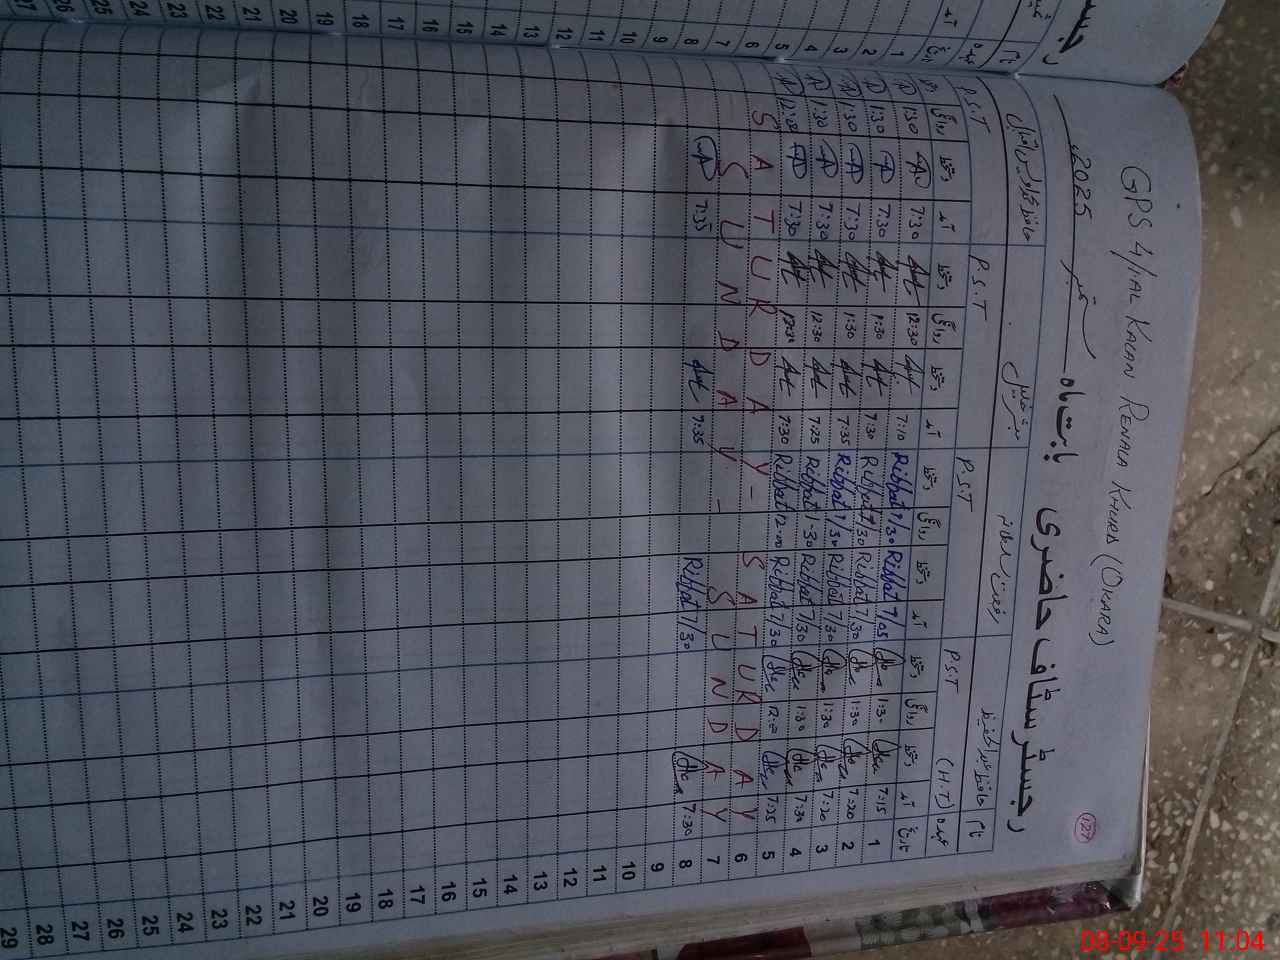 GPS 4/1AL KALAN RENALA KHURD (OKARA)
127
رجسٹر سٹاف حاضری بابت ماہ ستمبر 2025
نام
عہدہ P.S.T (H.T) P.S.T P.S.T P.S.T
تاریخ آمد دستخط روانگی دستخط آمد دستخط روانگی دستخط آمد دستخط روانگی دستخط آمد دستخط روانگی دستخط
1 7:15 1:30 7/05 Riffat 1/30 Riffat 7:10 12:30 7:30 1:30
2 7:20 1:30 7/30 Riffat 1/30 Riffat 7:30 1:30 7:30 1:30
3 7:20 1:30 7/30 Riffat 1/30 Riffat 7:35 1:30 7:30 1:30
4 7:30 1:30 7/30 Riffat 1-30 Riffat 7:25 12:30 7:30 1:30
5 7:35 7/30 Riffat 12-00 Riffat 7:30 7:30
6 SATURDAY SATURDAY -
7 SUNDAY SUNDAY -
8 7:30 7/30 Riffat 7:35 7:35
9
10
11
12
13
14
15
16
17
18
19
20
21
22
23
24
25
26
27
28
29
نام
عہدہ
تاریخ
آمد
1
2
3
4
5
6
7
8
9
10
11
12
13
14
15
16
17
18
19
20
21
22
23
24
25
26
27
08-09-25 11:04